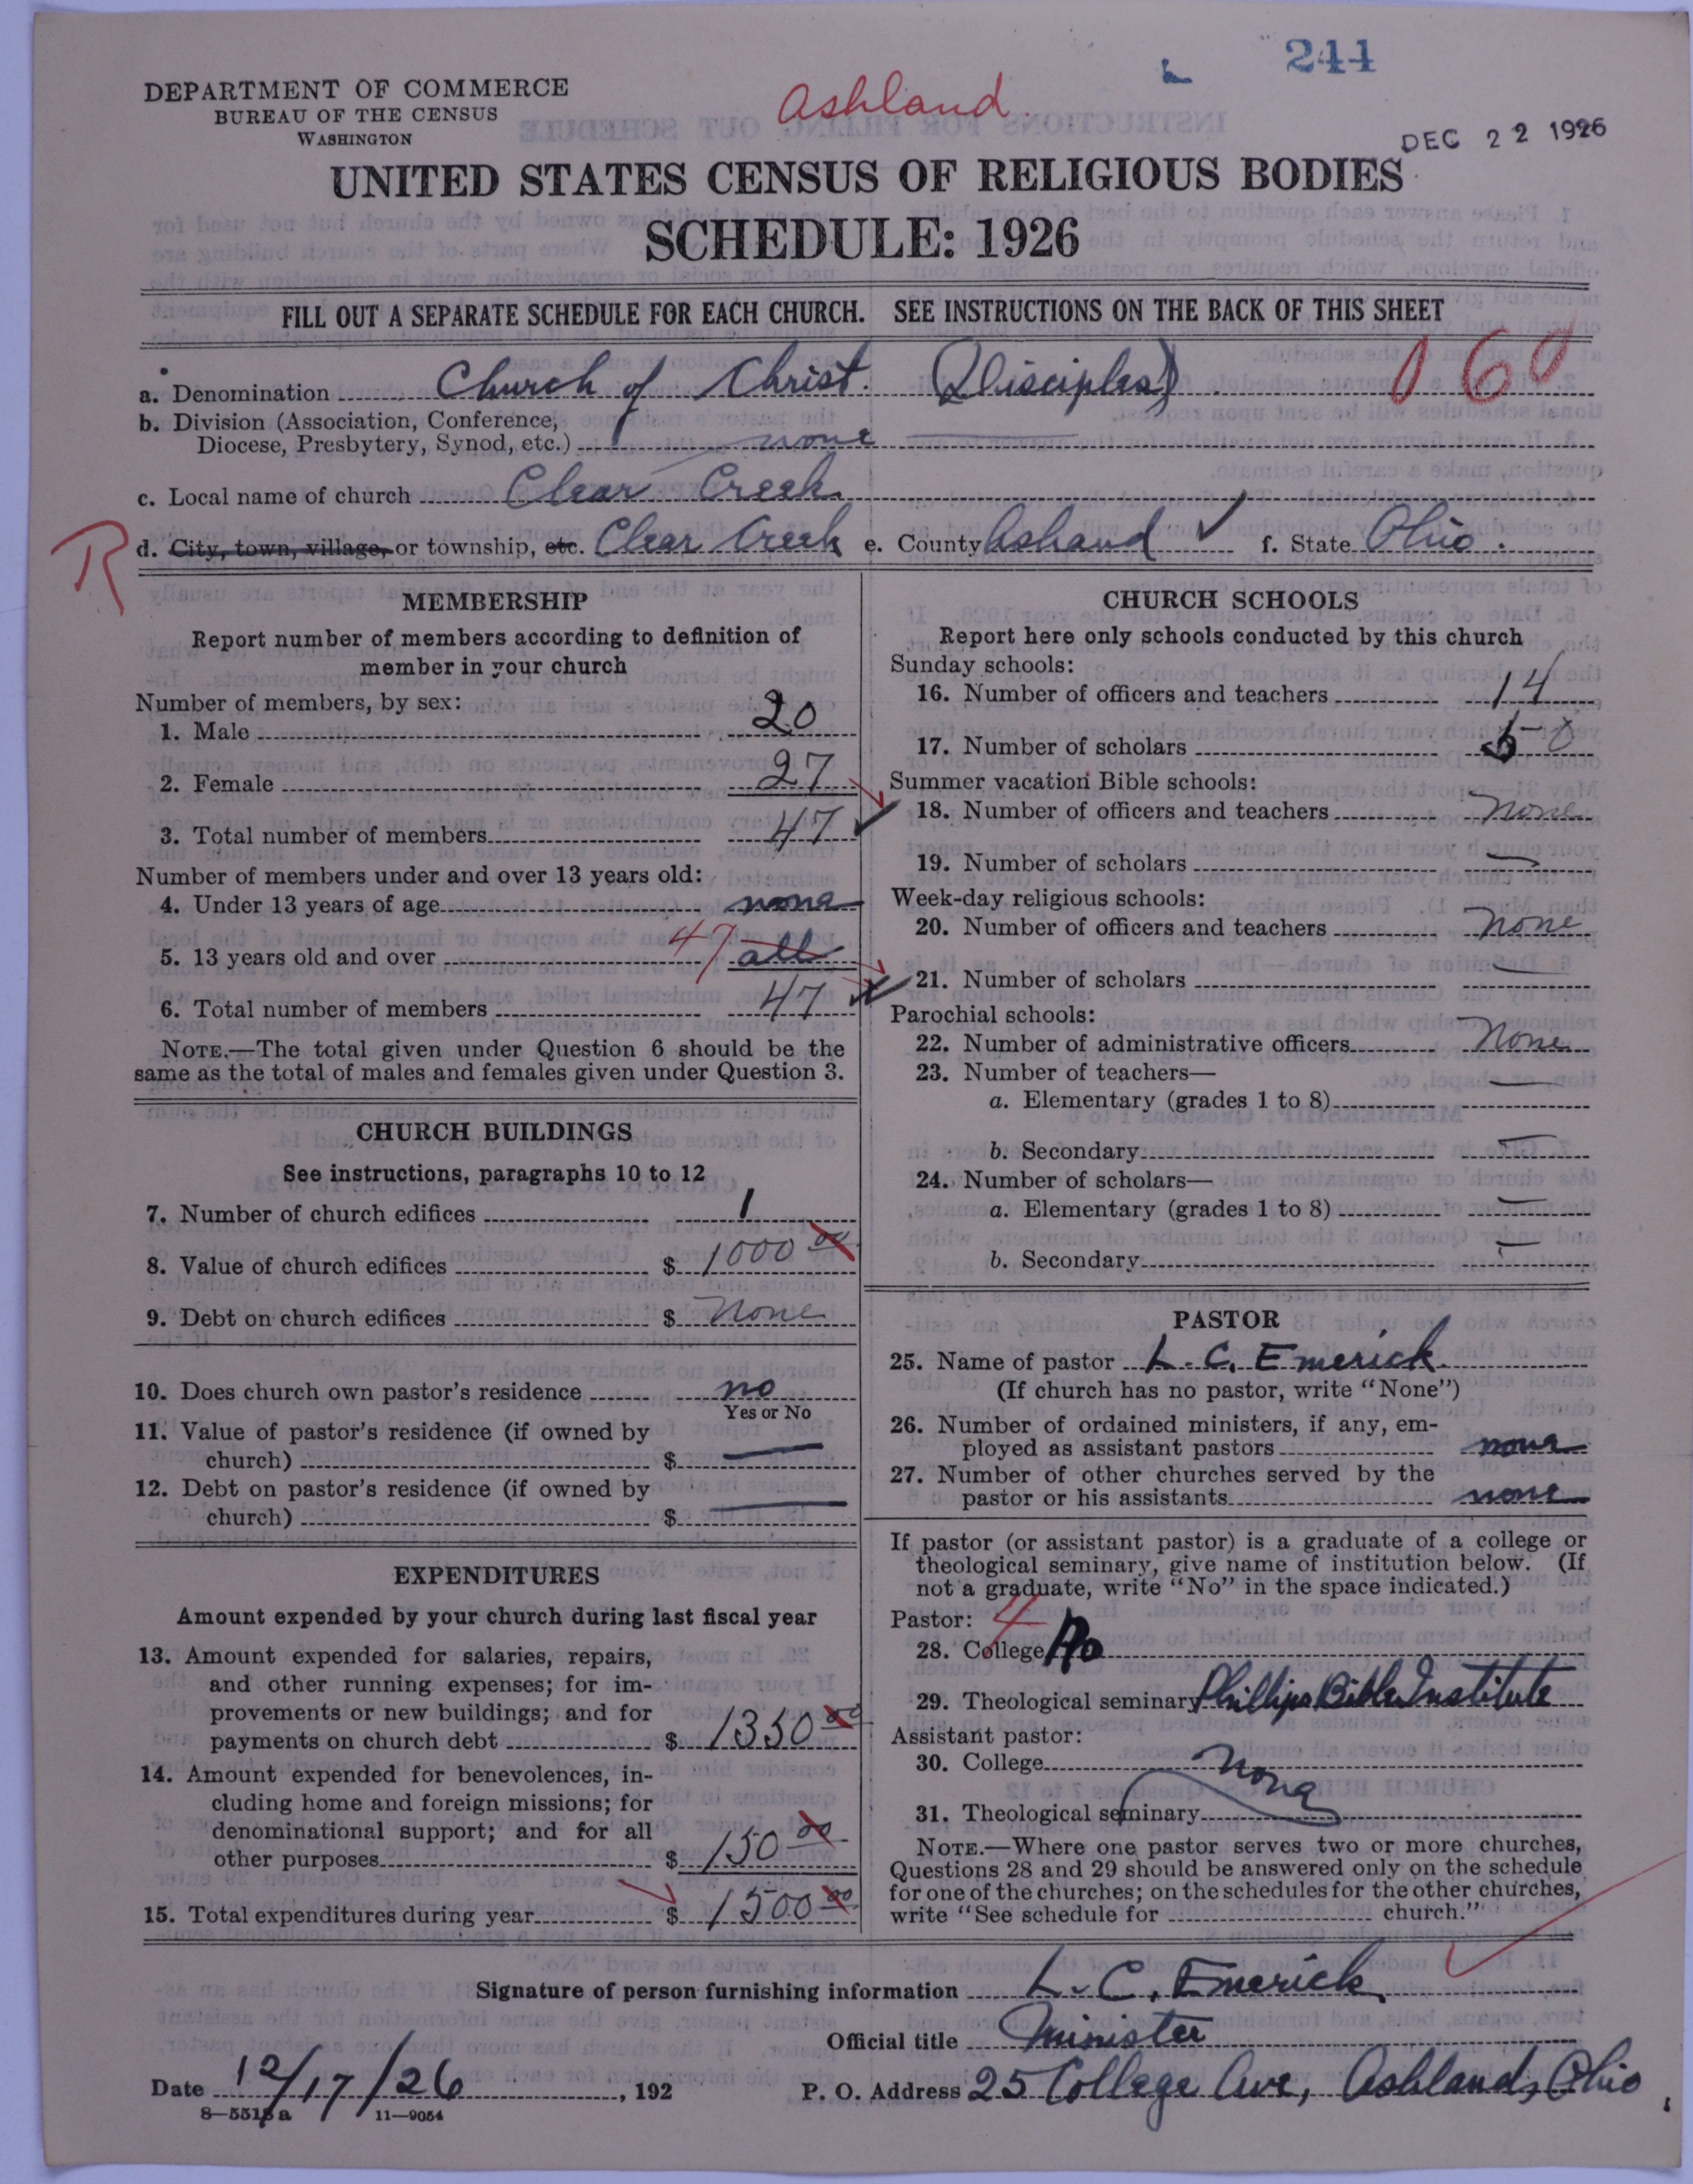 244
Ashland
DEC 22 1926
DEPARTMENT OF COMMERCE
BUREAU OF THE CENSUS
WASHINGTON
UNITED STATES CENSUS OF RELIGIOUS BODIES
SCHEDULE: 1926
FILL OUT A SEPARATE SCHEDULE FOR EACH CHURCH. SEE INSTRUCTIONS ON THE BACK OF THIS SHEET
a. Denomination Church of Christ. (Disciples) 160
b. Division (Association, Conference,
Diocese, Presbytery, Synod, etc.) none
c. Local name of church Clear Creek
R d. City, town, village, or township, etc. Clear Creek e. County Ashand f. State Ohio.
MEMBERSHIP
Report number of members according to definition of
member in your church
Number of members, by sex:
1. Male 20
2. Female 27
3. Total number of members 47
Number of members under and over 13 years old:
4. Under 13 years of age none
5. 13 years old and over 47 all
6. Total number of members 47
NOTE.—The total given under Question 6 should be the
same as the total of males and females given under Question 3.
CHURCH BUILDINGS
See instructions, paragraphs 10 to 12
7. Number of church edifices 1
8. Value of church edifices $ 1000 00
9. Debt on church edifices $ None
10. Does church own pastor's residence no
Yes or No
11. Value of pastor's residence (if owned by
church) $ —
12. Debt on pastor's residence (if owned by
church) $ —
EXPENDITURES
Amount expended by your church during last fiscal year
13. Amount expended for salaries, repairs,
and other running expenses; for im-
provements or new buildings; and for
payments on church debt $ 1350 00
14. Amount expended for benevolences, in-
cluding home and foreign missions; for
denominational support; and for all
other purposes $ 150 00
15. Total expenditures during year $ 1500 00
CHURCH SCHOOLS
Report here only schools conducted by this church
Sunday schools:
16. Number of officers and teachers 14
17. Number of scholars 50
Summer vacation Bible schools:
18. Number of officers and teachers none
19. Number of scholars —
Week-day religious schools:
20. Number of officers and teachers None
21. Number of scholars —
Parochial schools:
22. Number of administrative officers None
23. Number of teachers—
a. Elementary (grades 1 to 8) —
b. Secondary —
24. Number of scholars—
a. Elementary (grades 1 to 8) —
b. Secondary —
PASTOR
25. Name of pastor L. C. Emerick
(If church has no pastor, write "None")
26. Number of ordained ministers, if any, em-
ployed as assistant pastors none
27. Number of other churches served by the
pastor or his assistants none
If pastor (or assistant pastor) is a graduate of a college or
theological seminary, give name of institution below. (If
not a graduate, write "No" in the space indicated.)
Pastor: 4
28. College No
29. Theological seminary Phillips Bible Institute
Assistant pastor:
30. College None
31. Theological seminary
NOTE.—Where one pastor serves two or more churches,
Questions 28 and 29 should be answered only on the schedule
for one of the churches; on the schedules for the other churches,
write "See schedule for church."
Signature of person furnishing information L. C. Emerick
Official title Minister
Date 12/17/26, 192 P. O. Address 25 College Ave, Ashland, Ohio
8—5518 a 11—9054